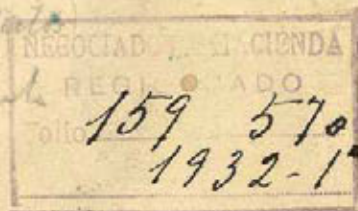 NEGOCIADO HACIENDA
REGISTRADO
Folio 159 570
1932-1